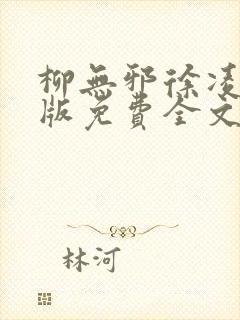 柳無邪徐凌
版免費全文
林河